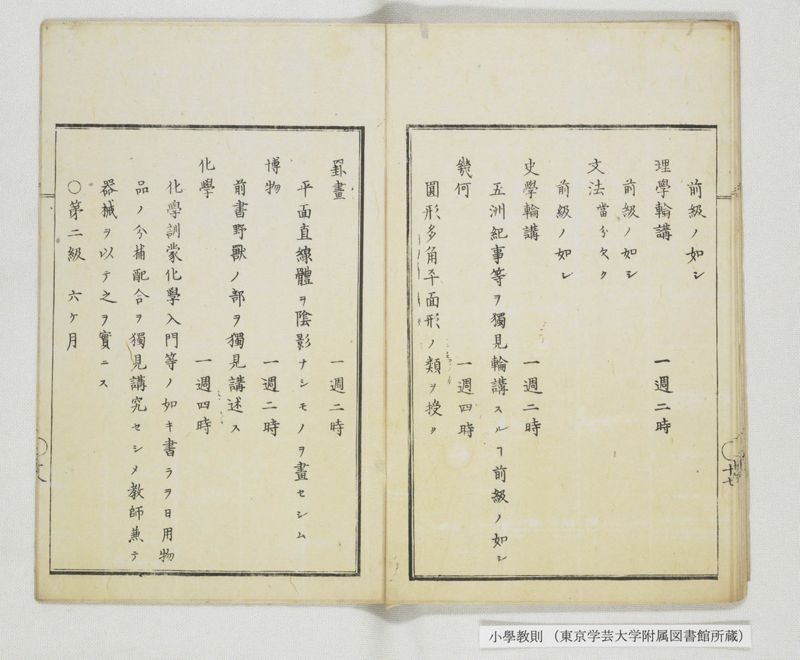 前級ノ如シ
理學輪講 一週二時
前級ノ如シ
文法當分欠ク
前級ノ如シ
史學輪講 一週二時
五洲紀事等ヲ獨見輪講スルヿ前級ノ如シ
幾何 一週四時
圓形多角平面形ノ類ヲ授ク
罫畫 一週二時
平面直線體ヲ陰影ナシモノヲ畫セシム
博物 一週二時
前書野獸ノ部ヲ獨見講述ス
化學 一週四時
化學訓蒙化學入門等ノ如キ書ラヲ日用物
品ノ分捕配合ヲ獨見講究セシメ教師兼テ
器械ヲ以テ之ヲ實ニス
○第二級 六ケ月
十七
小學教則 （東京学芸大学附属図書館所蔵）